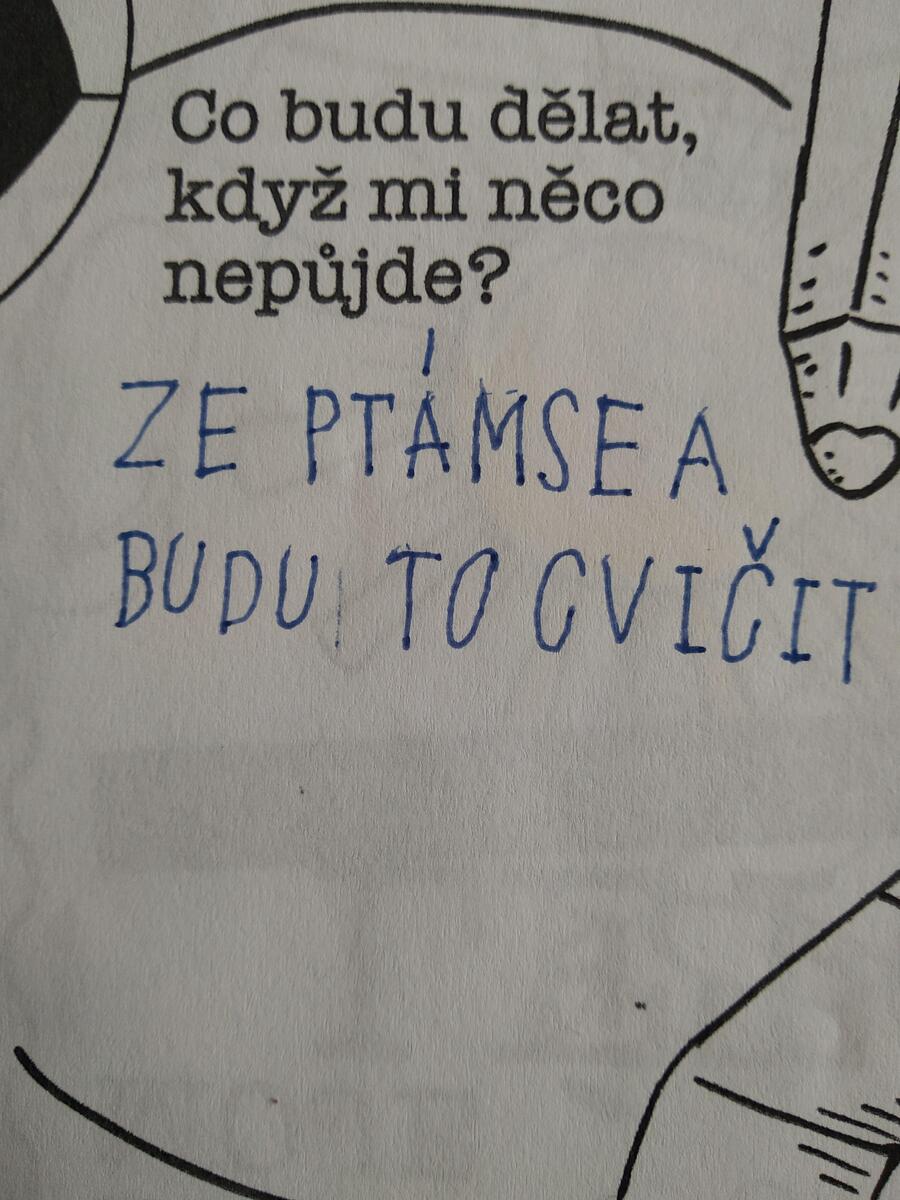 Co budu dělat,
když mi něco
nepůjde?
ZE PTÁMSE A
BUDU TO CVIČIT